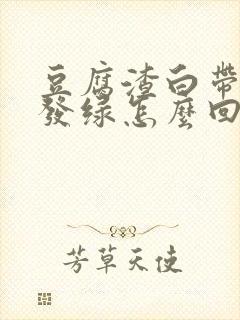 豆腐渣白帶
發綠怎麼回
芳草天使